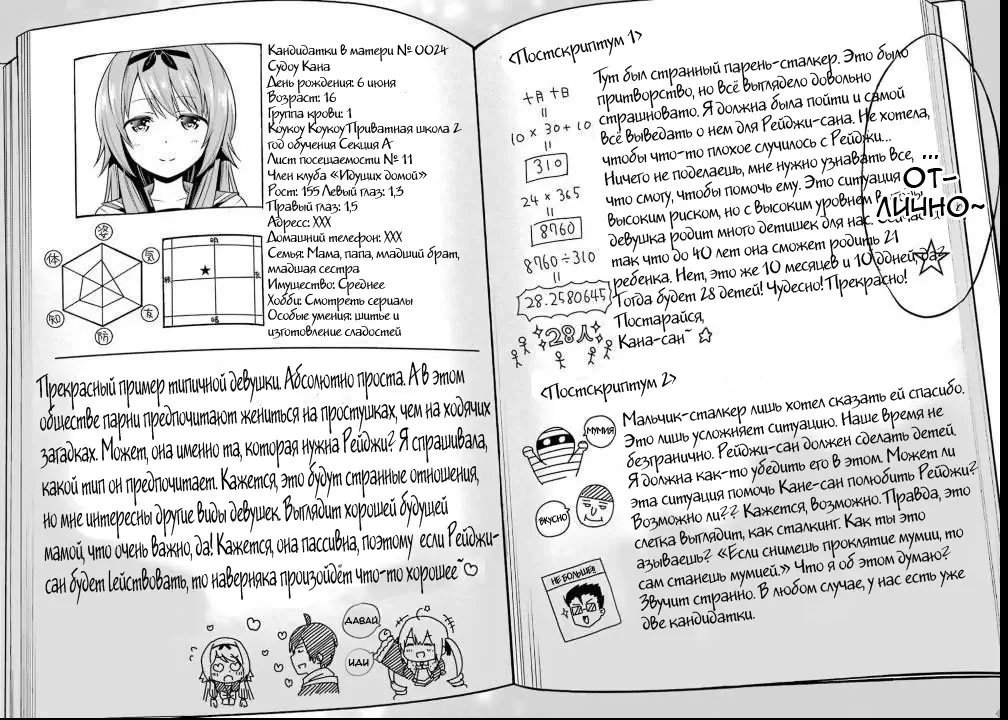 Кандидатки в матери № 0024
Судоу Кана
День рождения: 6 июня
Возраст: 16
Группа крови: 1
Коукоу Коукоу Приватная школа 2
год обучения Секция А
Лист посещаемости № 11
Член клуба «Идущих домой»
Рост: 155 Левый глаз: 1,3
Правый глаз: 1,5
Адрес: ХХХ
Домашний телефон: ХХХ
Семья: Мама, папа, младший брат,
младшая сестра
Имущество: Среднее
Хобби: Смотреть сериалы
Особые умения: шитье и
изготовление сладостей
姿
体
気
知
友
防
Прекрасный пример типичной девушки. Абсолютно проста. А в этом
обществе парни предпочитают жениться на простушках, чем на ходячих
загадках. Может, она именно та, которая нужна Рейджи? Я спрашивала,
какой тип он предпочитает. Кажется, это будут странные отношения,
но мне интересны другие виды девушек. Выглядит хорошей будущей
мамой, что очень важно, да! Кажется, она пассивна, поэтому если Рейджи-
сан будет lействовать, то наверняка произойдёт что-то хорошее~♡
ДАВАЙ
ИДИ
<Постскриптум 1>
十月十日
=
10 × 30 + 10
=
310
24 × 365
=
8760
8760 ÷ 310
=
28.2580645
28人
Тут был странный парень-сталкер. Это было
притворство, но всё выглядело довольно
страшновато. Я должна была пойти и самой
всё выведать о нем для Рейджи-сана. Не хотела,
чтобы что-то плохое случилось с Рейджи...
Ничего не поделаешь, мне нужно узнавать все,
что смогу, чтобы помочь ему. Это ситуация с
высоким риском, но с высоким уровнем
девушка родит много детишек для нас.
так что до 40 лет она сможет родить 21
ребенка. Нет, это же 10 месяцев и 10 дней,
Тогда будет 28 детей! Чудесно! Прекрасно!
Постарайся,
Кана-сан~ ☆
...
ОТ-
ЛИЧНО~
<Постскриптум 2>
МУМИЯ
ВКУСНО
НЕ БОЛЬШЕ!!
Мальчик-сталкер лишь хотел сказать ей спасибо.
Это лишь усложняет ситуацию. Наше время не
безгранично. Рейджи-сан должен сделать детей.
Я должна как-то убедить его в этом. Может ли
эта ситуация помочь Кане-сан полюбить Рейджи?
Возможно ли?? Кажется, возможно. Правда, это
слегка выглядит, как сталкинг. Как ты это
азываешь? «Если снимешь проклятие мумии, то
сам станешь мумией.» Что я об этом думаю?
Звучит странно. В любом случае, у нас есть уже
две кандидатки.